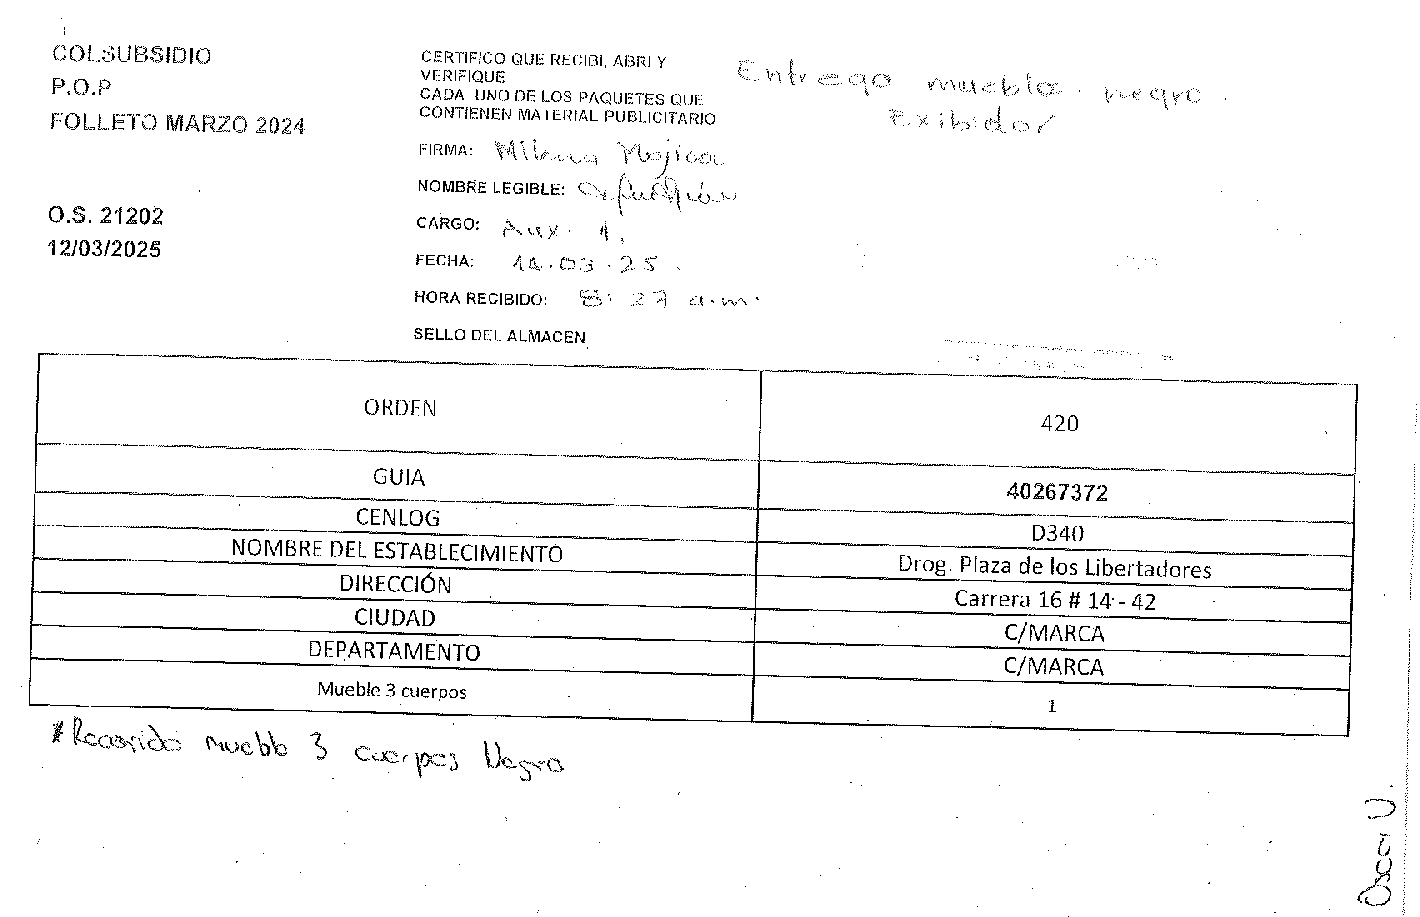 COLSUBSIDIO
P.O.P
FOLLETO MARZO 2024
O.S. 21202
12/03/2025
CERTIFICO QUE RECIBI, ABRI Y
VERIFIQUE
CADA UNO DE LOS PAQUETES QUE
CONTIENEN MATERIAL PUBLICITARIO
FIRMA: Milena Mojica
NOMBRE LEGIBLE:
CARGO: Aux. 1.
FECHA: 14.03.25.
HORA RECIBIDO: 8:27 a.m.
SELLO DEL ALMACEN
Entrego mueble negro.
Exibidor
ORDEN 420
GUIA 40267372
CENLOG D340
NOMBRE DEL ESTABLECIMIENTO Drog. Plaza de los Libertadores
DIRECCIÓN Carrera 16 # 14 - 42
CIUDAD C/MARCA
DEPARTAMENTO C/MARCA
Mueble 3 cuerpos 1
mueble 3 cuerpos Negro
Oscar U.